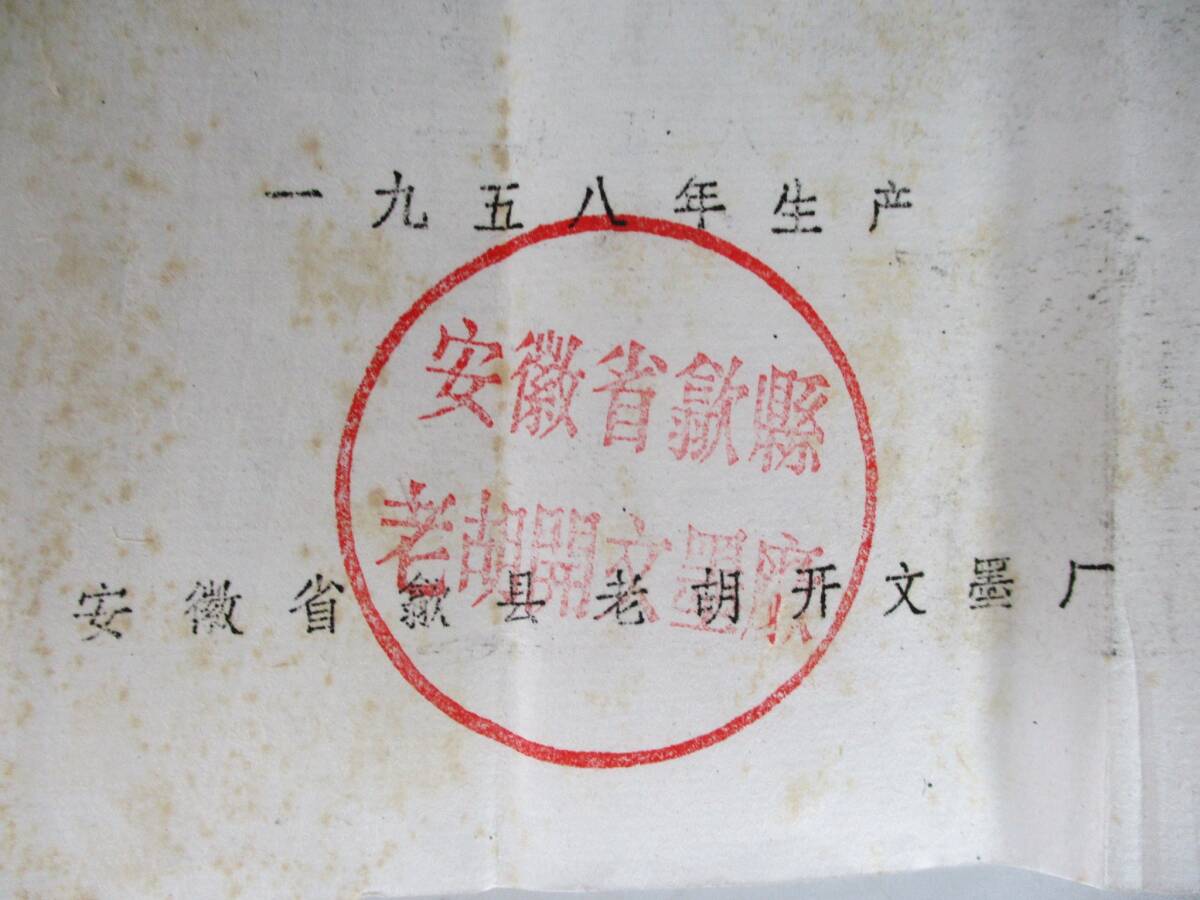 一九五八年生产
安徽省歙縣
老胡開文墨廠
安徽省歙县老胡开文墨厂